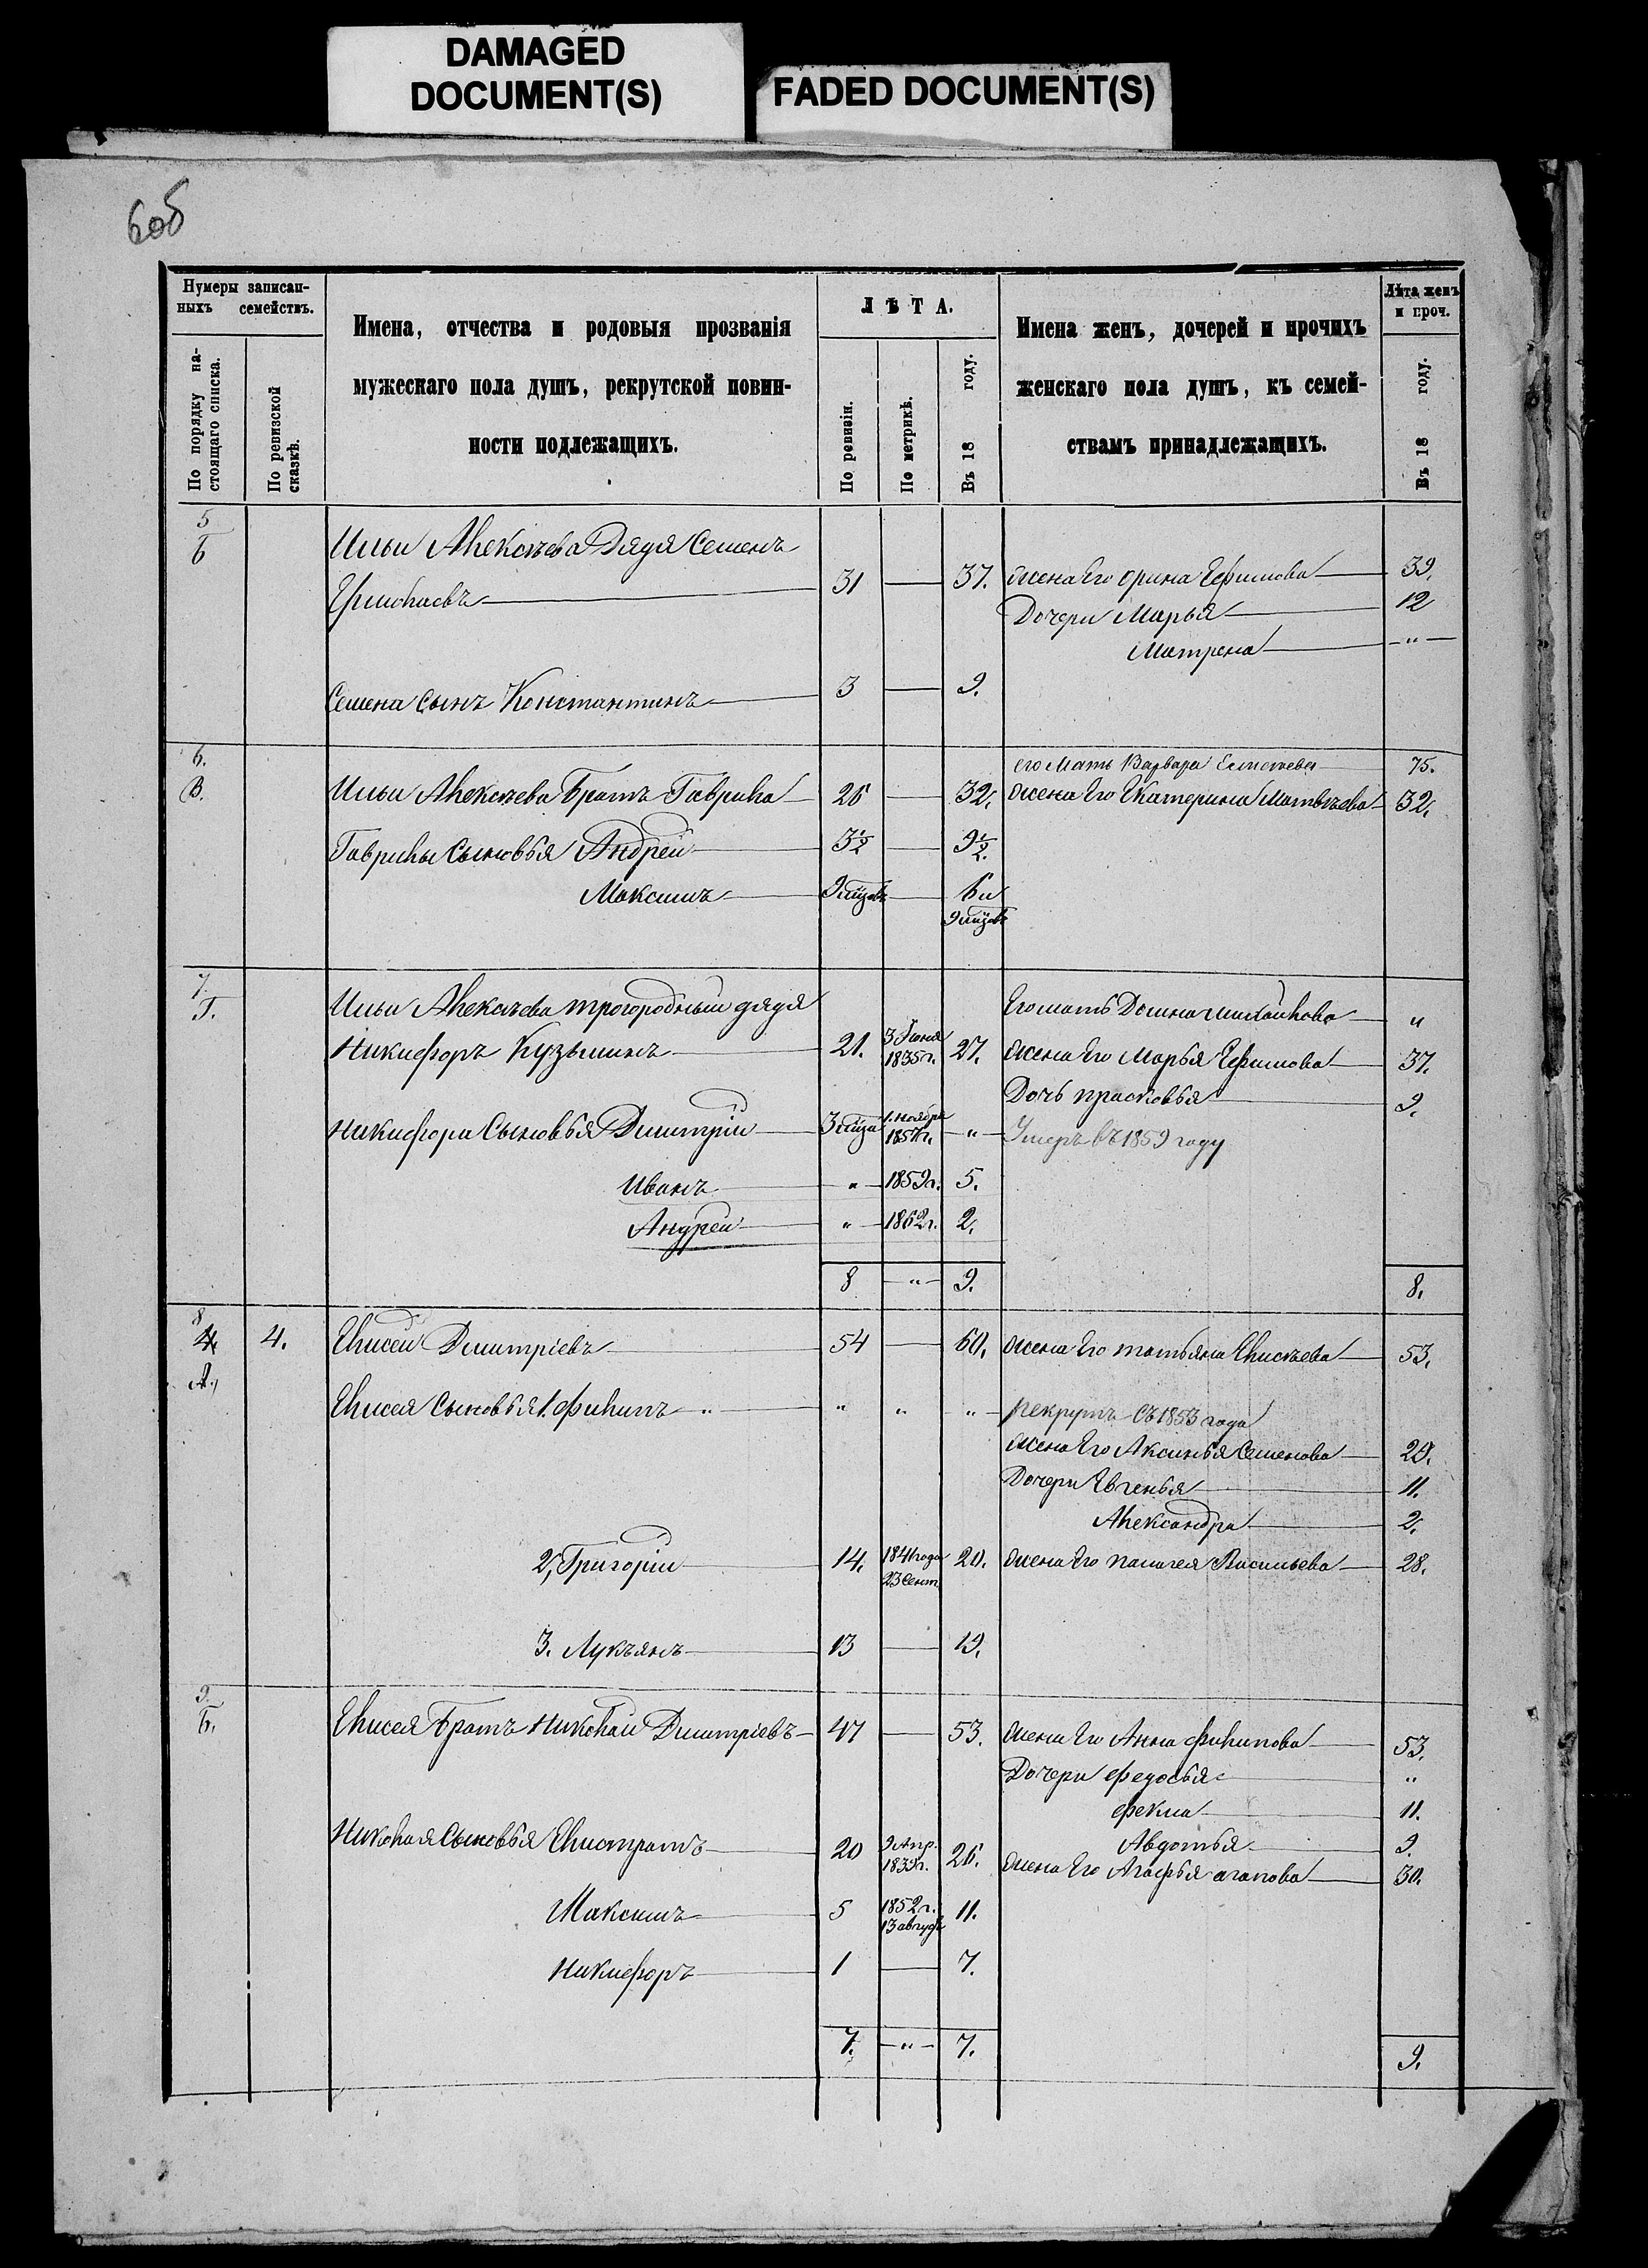 DAMAGED
DOCUMENT(S)
FADED DOCUMENT(S)
6об
Нумеры записан-
ныхъ семействъ.
По порядку на-
стоящаго списка.
По ревизской
сказкѣ.
Имена, отчества и родовыя прозванія
мужескаго пола душъ, рекрутской повин-
ности подлежащихъ.
ЛѢТА.
По ревизіи.
По метрикѣ.
Въ 18 году.
Имена женъ, дочерей и прочихъ
женскаго пола душъ, къ семей-
ствамъ принадлежащихъ.
Лѣта женъ
и проч.
Въ 18 году.
5
Б
Ильи Алексѣева Дядя Семенъ
31 37. жена Его Орина Ефимова 39.
Дочери Марья 12
Матрена "
Семена Сынъ Константинъ 3 9.
6.
В.
его Мать Варвара 75.
Ильи Алексѣева Братъ Гаврила 26 32. жена Его Екатерина Матвѣева 32.
Гаврилы Сыновья Андрей 3½ 9½.
Максимъ 9 мѣцовъ 6 и
9 мѣцовъ
7
Г.
Ильи Алексѣева трогородный дядя
Его мать Домна Михайлова "
Никифоръ Кузьминъ 21. 3 Іюня 1835 г. 27. жена Его Марья Ефимова 37.
Дочь прасковья 9.
Никифора Сыновья Димитрій 3 мѣца 1. ноября 1857 г. " Умеръ въ 1859 году
Иванъ " 1859 г. 5.
Андрей " 1862 г. 2.
8 " 9. 8.
8
4 4. Елисей Димитріевъ 54 60. жена Его татьяна Елисѣева 53.
А.
Елисея Сыновья 1. Филипъ " " " " рекрутъ съ 1853 года
жена Его Аксинья Семенова 29.
Дочери Евгенья 11.
Александра 2.
2, Григорій 14. 1841 года 23 Сент. 20. жена Его палагея Васильева 28.
3. Лукъянъ 13 19.
9.
Б.
Елисея Братъ Николай Димитріевъ 47 53. жена Его Анна Филипова 53.
Дочери Федосья "
Фекла 11.
Авдотья 9.
Николая Сыновья Елистратъ 20 9 Апр. 26. жена Его Агафья агапова 30.
Максимъ 5 1852 г. 13 август 11.
Никифоръ 1 7.
7. " 7. 9.